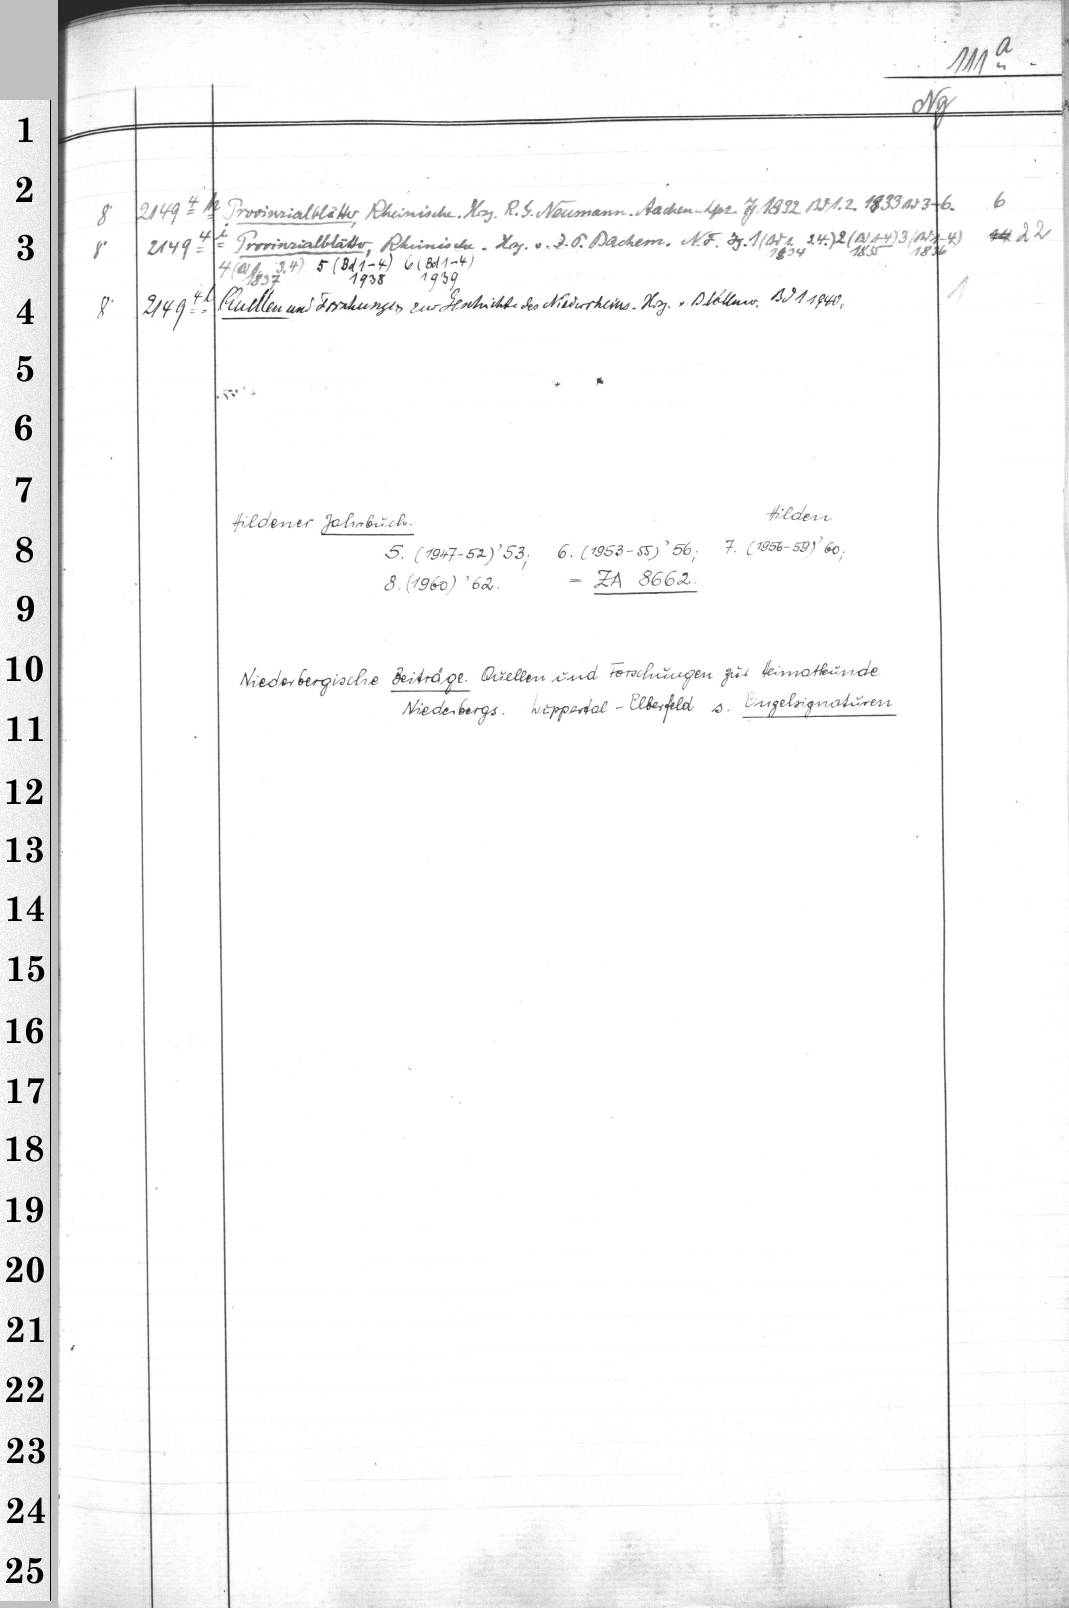 111 a
Ng
8° 2149 4 h Provinzialblätter, Rheinische. Hrsg. R. G. Neumann. Aachen-Lpz. Jg 1832 Bd 1. 2. 1833 Bd 3-6. 6
8° 2149 4 i Provinzialblätter, Rheinische. Hrsg. v. J. P. Bachem. N. F. Jg. 1 (Bd 1. 2 4.) 2 (Bd 1-4) 3 (Bd 1-4) 22
1834 1835 1836
4 (Bd 1. 3.4) 5 (Bd 1-4) 6 (Bd 1-4)
1837 1938 1939
8° 2149 4 l Quellen und Forschungen zur Geschichte des Niederrheins. Hrsg. v. Bd 1 1940. 1
Hildener Jahrbuch. Hilden
5. (1947-52) '53; 6. (1953-55) '56; 7. (1956-59) '60;
8. (1960) '62. = ZA 8662.
Niederbergische Beiträge. Quellen und Forschungen zur Heimatkunde
Niederbergs. Wuppertal - Elberfeld s. Engelsignaturen
1
2
3
4
5
6
7
8
9
10
11
12
13
14
15
16
17
18
19
20
21
22
23
24
25